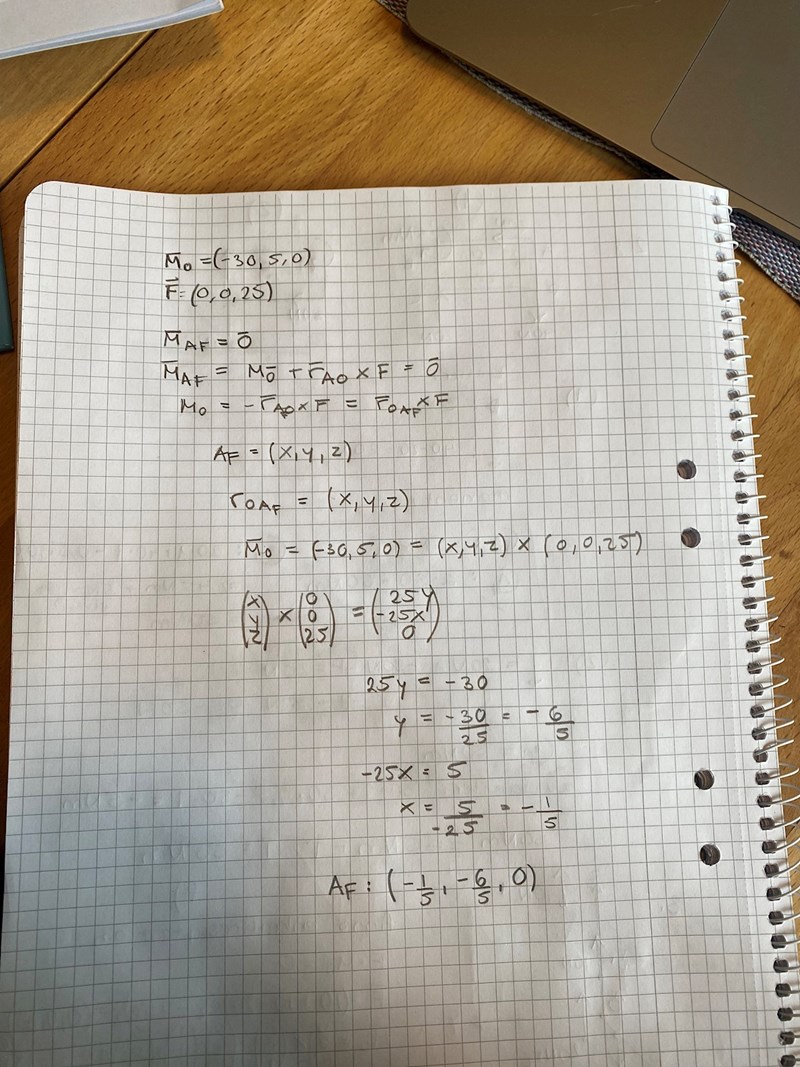 M̄₀ = (-30, 5, 0)
F̄ = (0, 0, 25)
M̄_AF = 0̄
M̄_AF = M0̄ + r̄_AO × F = 0̄
M₀ = - r̄_AO × F = r̄_OAF × F
A_F = (x, y, z)
r_OAF = (x, y, z)
M̄₀ = (-30, 5, 0) = (x, y, z) × (0, 0, 25)
(x y z) × (0 0 25) = (25y -25x 0)
25y = -30
y = -30/25 = -6/5
-25x = 5
x = 5/-25 = -1/5
A_F : (-1/5, -6/5, 0)